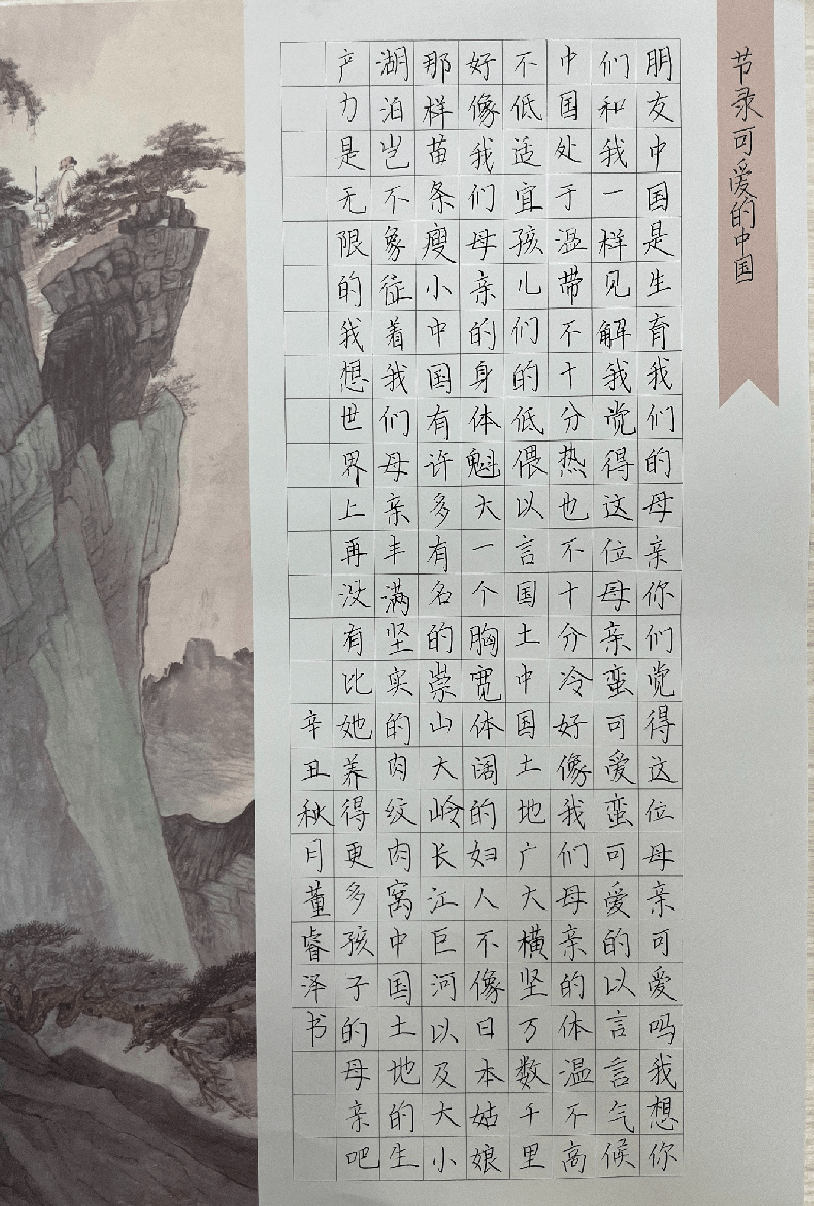 节录可爱的中国
朋友中国是生育我们的母亲你们觉得这位母亲可爱吗我想你
们和我一样见解我觉得这位母亲蛮可爱蛮可爱的以言言气候
中国处于温带不十分热也不十分冷好像我们母亲的体温不高
不低适宜孩儿们的低偎以言国土中国土地广大横坚万数千里
好像我们母亲的身体魁大一个胸宽体阔的妇人不像日本姑娘
那样苗条瘦小中国有许多有名的崇山大岭长江巨河以及大小
湖泊岂不象征着我们母亲丰满坚实的肉纹肉窝中国土地的生
产力是无限的我想世界上再没有比她养得更多孩子的母亲吧
辛丑秋月董睿泽书